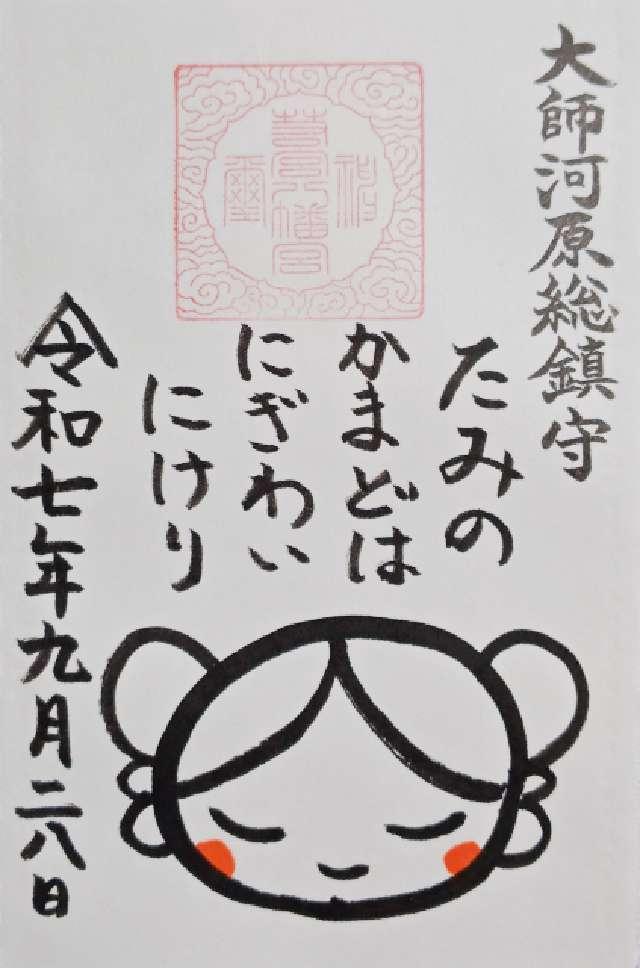 大師河原総鎮守
たみの
かまどは
にぎわい
にけり
令和七年九月二八日